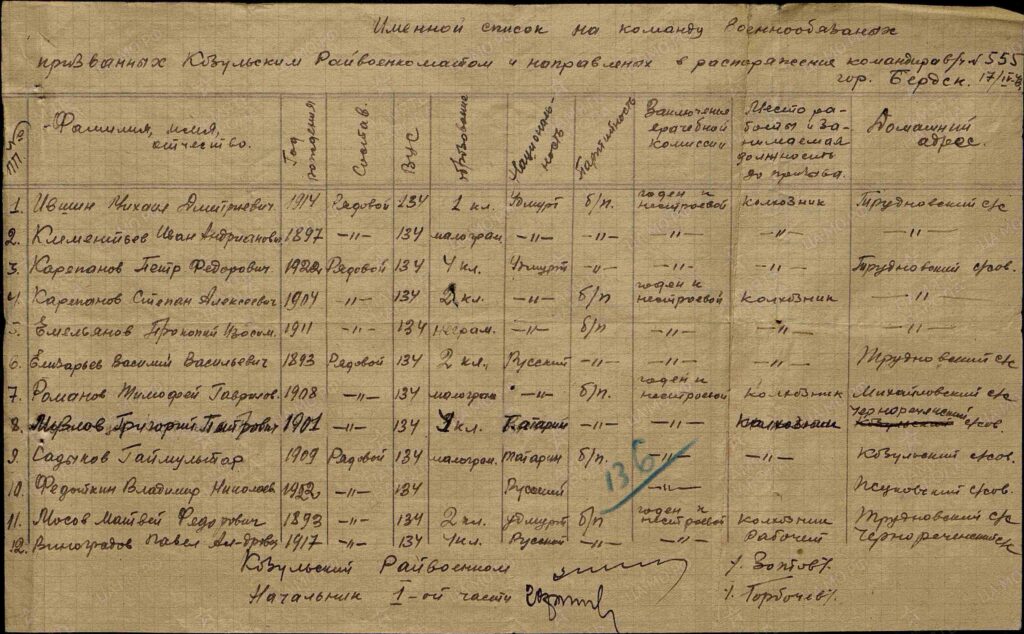 Именной список на команду военнообязаных
призванных Козульским Райвоенкоматом и направленых в распоряжение командира в/ч №555
гор. Бердск. 17/IV-
№ ПП Фамилия, имя, отчество. Год рождения Состав. ВУС Образование Национальность Партийность Заключение врачебной комиссии Место работы и занимаемая должность до призыва. Домашний адрес.
1. Ившин Михаил Дмитриевич. 1914 Рядовой 134 1 кл. Удмурт б/п. годен к нестроевой колхозник Трудновский с/с
2. Клементьев Иван Андрианович 1897 —„— 134 малограм. —„— —„— —„— —„— —„—
3. Карепанов Петр Федорович. 1922 Рядовой 134 4 кл. Удмурт —„— —„— —„— Трудновский с/сов.
4. Карепанов Степан Алексеевич 1904 —„— 134 2 кл. —„— б/п годен к нестроевой колхозник —„—
5. Емельянов Прокопий Изосим. 1911 —„— 134 неграм. —„— б/п —„— —„— —„—
6. Елизарьев Василий Васильевич 1893 Рядовой 134 2 кл. Русский —„— —„— —„— Трудновский с/с
7. Романов Тимофей Гаврилов. 1908 —„— 134 малограм —„— б/п. годен к нестроевой колхозник Михайловский с/с
8. Григорий Петрович 1901 —„— 134 кл. Татарин —„— —„— колхозник Чернореченский Козульский с/сов.
9. Садыков Гаймультар 1909 Рядовой 134 малограм. татарин б/п. —„— —„— Козульский с/сов.
10. Федоткин Владимир Николаев. 1922 —„— 134 Русский —„— с/сов.
136
11. Мосов Матвей Федорович 1893 —„— 134 2 кл. Удмурт б/п годен к нестроевой колхозник Трудновский с/с
12. Виноградов Павел 1917 —„— 134 4 кл. Русской —„— —„— Рабочий Чернореченский с/с
Козульский Райвоенком /. Зоптов/.
Начальник I-ой части /. Горбочев/.